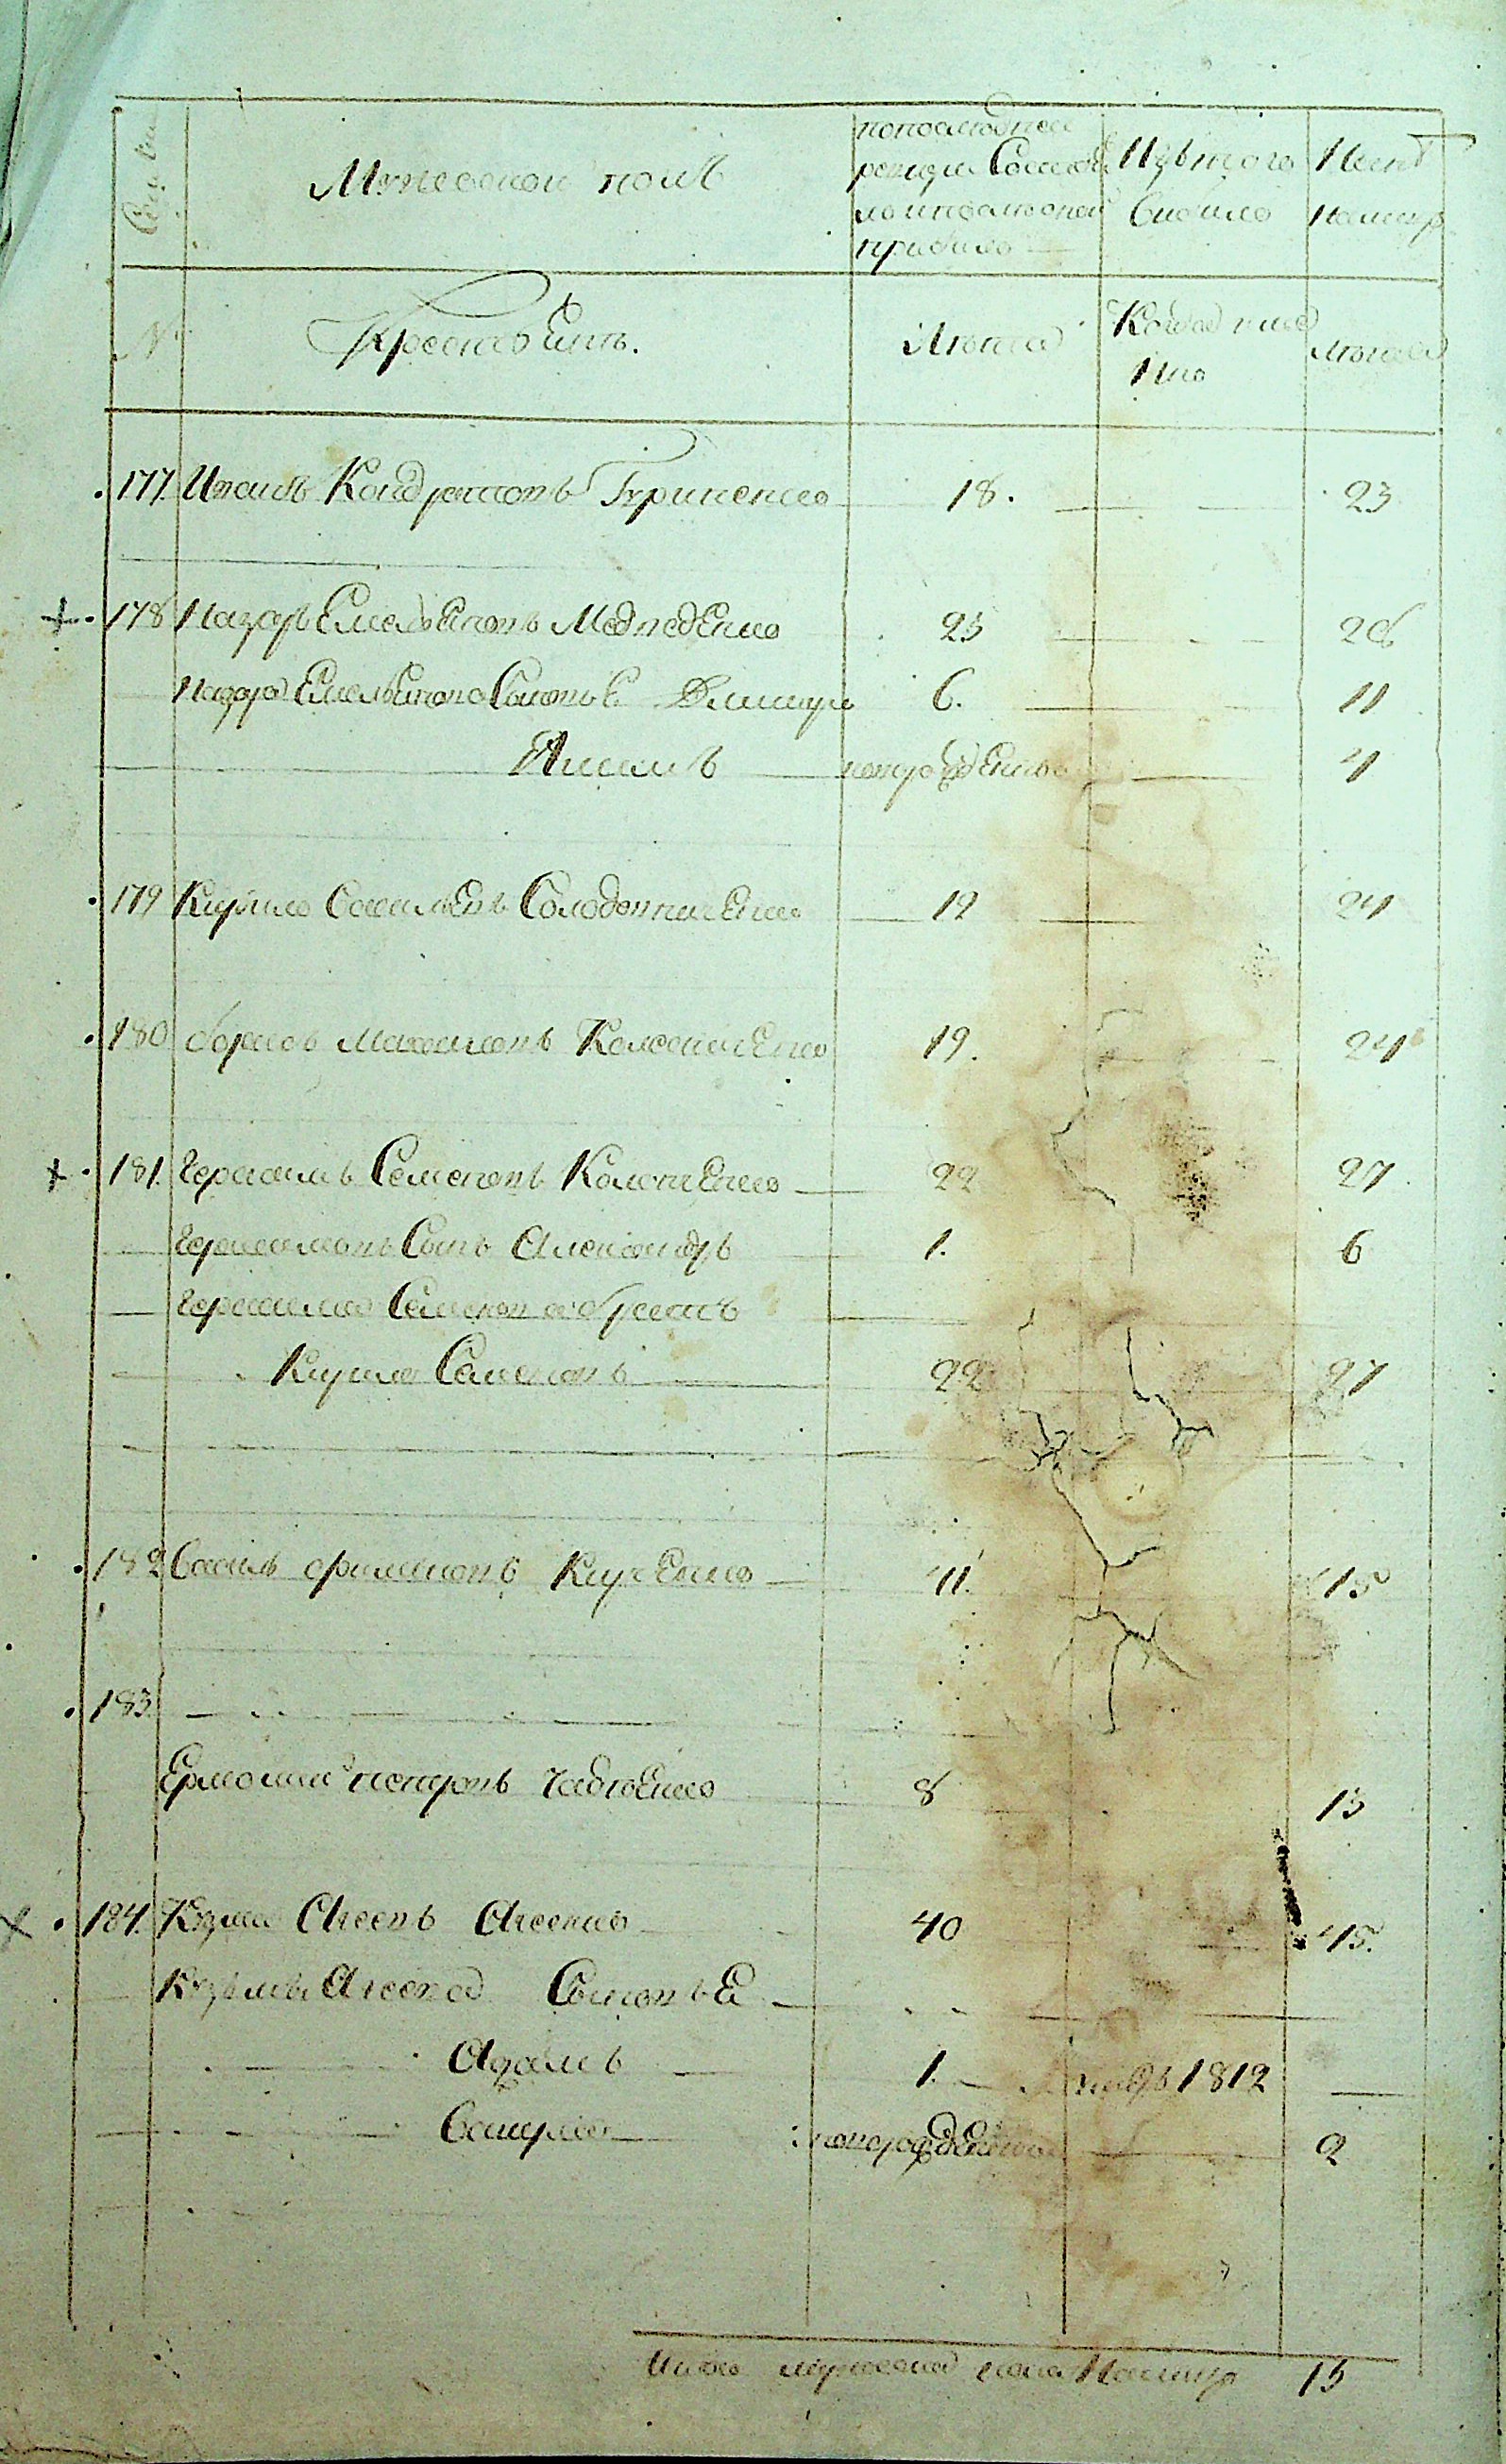 Мужеской полъ
по последней
ревизии Состоя
ло и после оной
прибыло
Изъ того
Выбыло
Ныне
на лицо
№
Крестьяне.
Лета
Когда име
нно
Лета
177. Иванъ Кондратовъ Гриненко 18. 23
178 Назаръ Емельяновъ Медведенко 23 28
Назара Емельянова Сыновья Дмитри 6. 11
Якимъ новорожденно 4
179 Кирило Савельевъ Солодовниченко 19 24
180 Борисъ Максимовъ Колесниченко 19. 24
181. Герасимъ Семеновъ Колотченко 22 27
Герасимовъ Сынъ Александръ 1. 6
Герасима Семенова братъ
Кирило Семеновъ 22 27
182 Василь Филиповъ Кирченко 11. 15
183.
Ермолай Петровъ Чабченко 8 13
184. Кузма Агеевъ Агеенко 40 45.
Кузьмы Агеева Сыновья
Адамъ 1. 1812
новорожденно 2
Итого мужеска пола На лицо 15